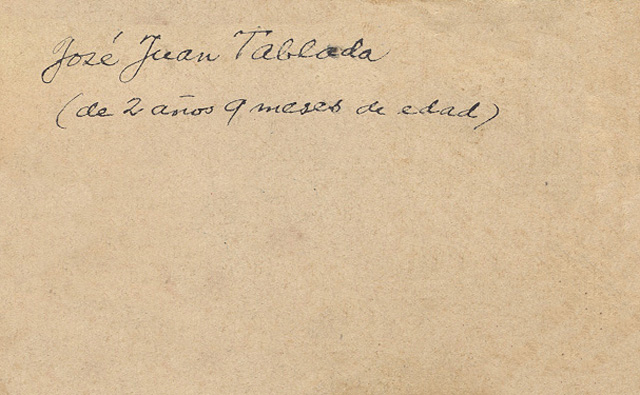 José Juan Tablada
(de 2 años 9 meses de edad)